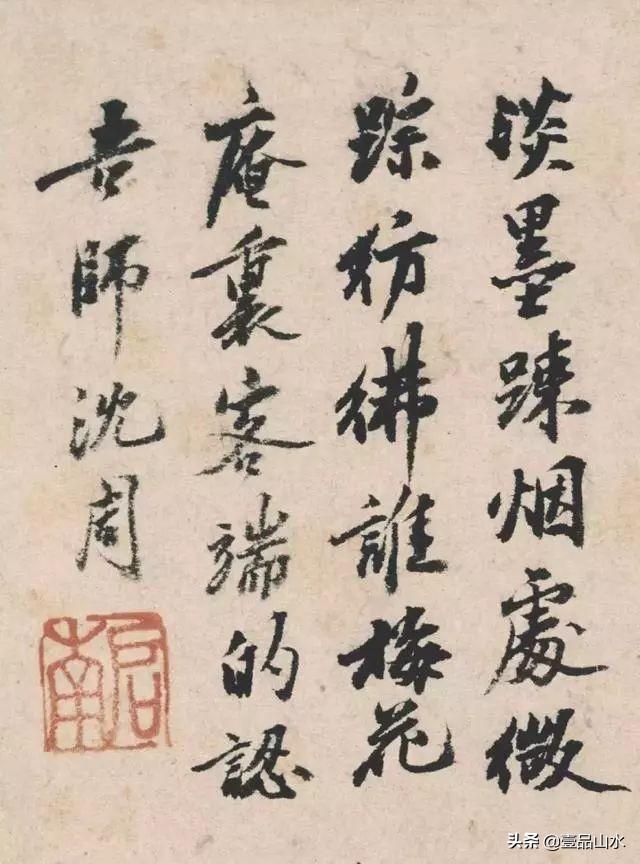 淡墨踈烟處微
踪彷彿誰梅花
庵裏客端的認
吾師沈周
啟南
头条 @壹品山水